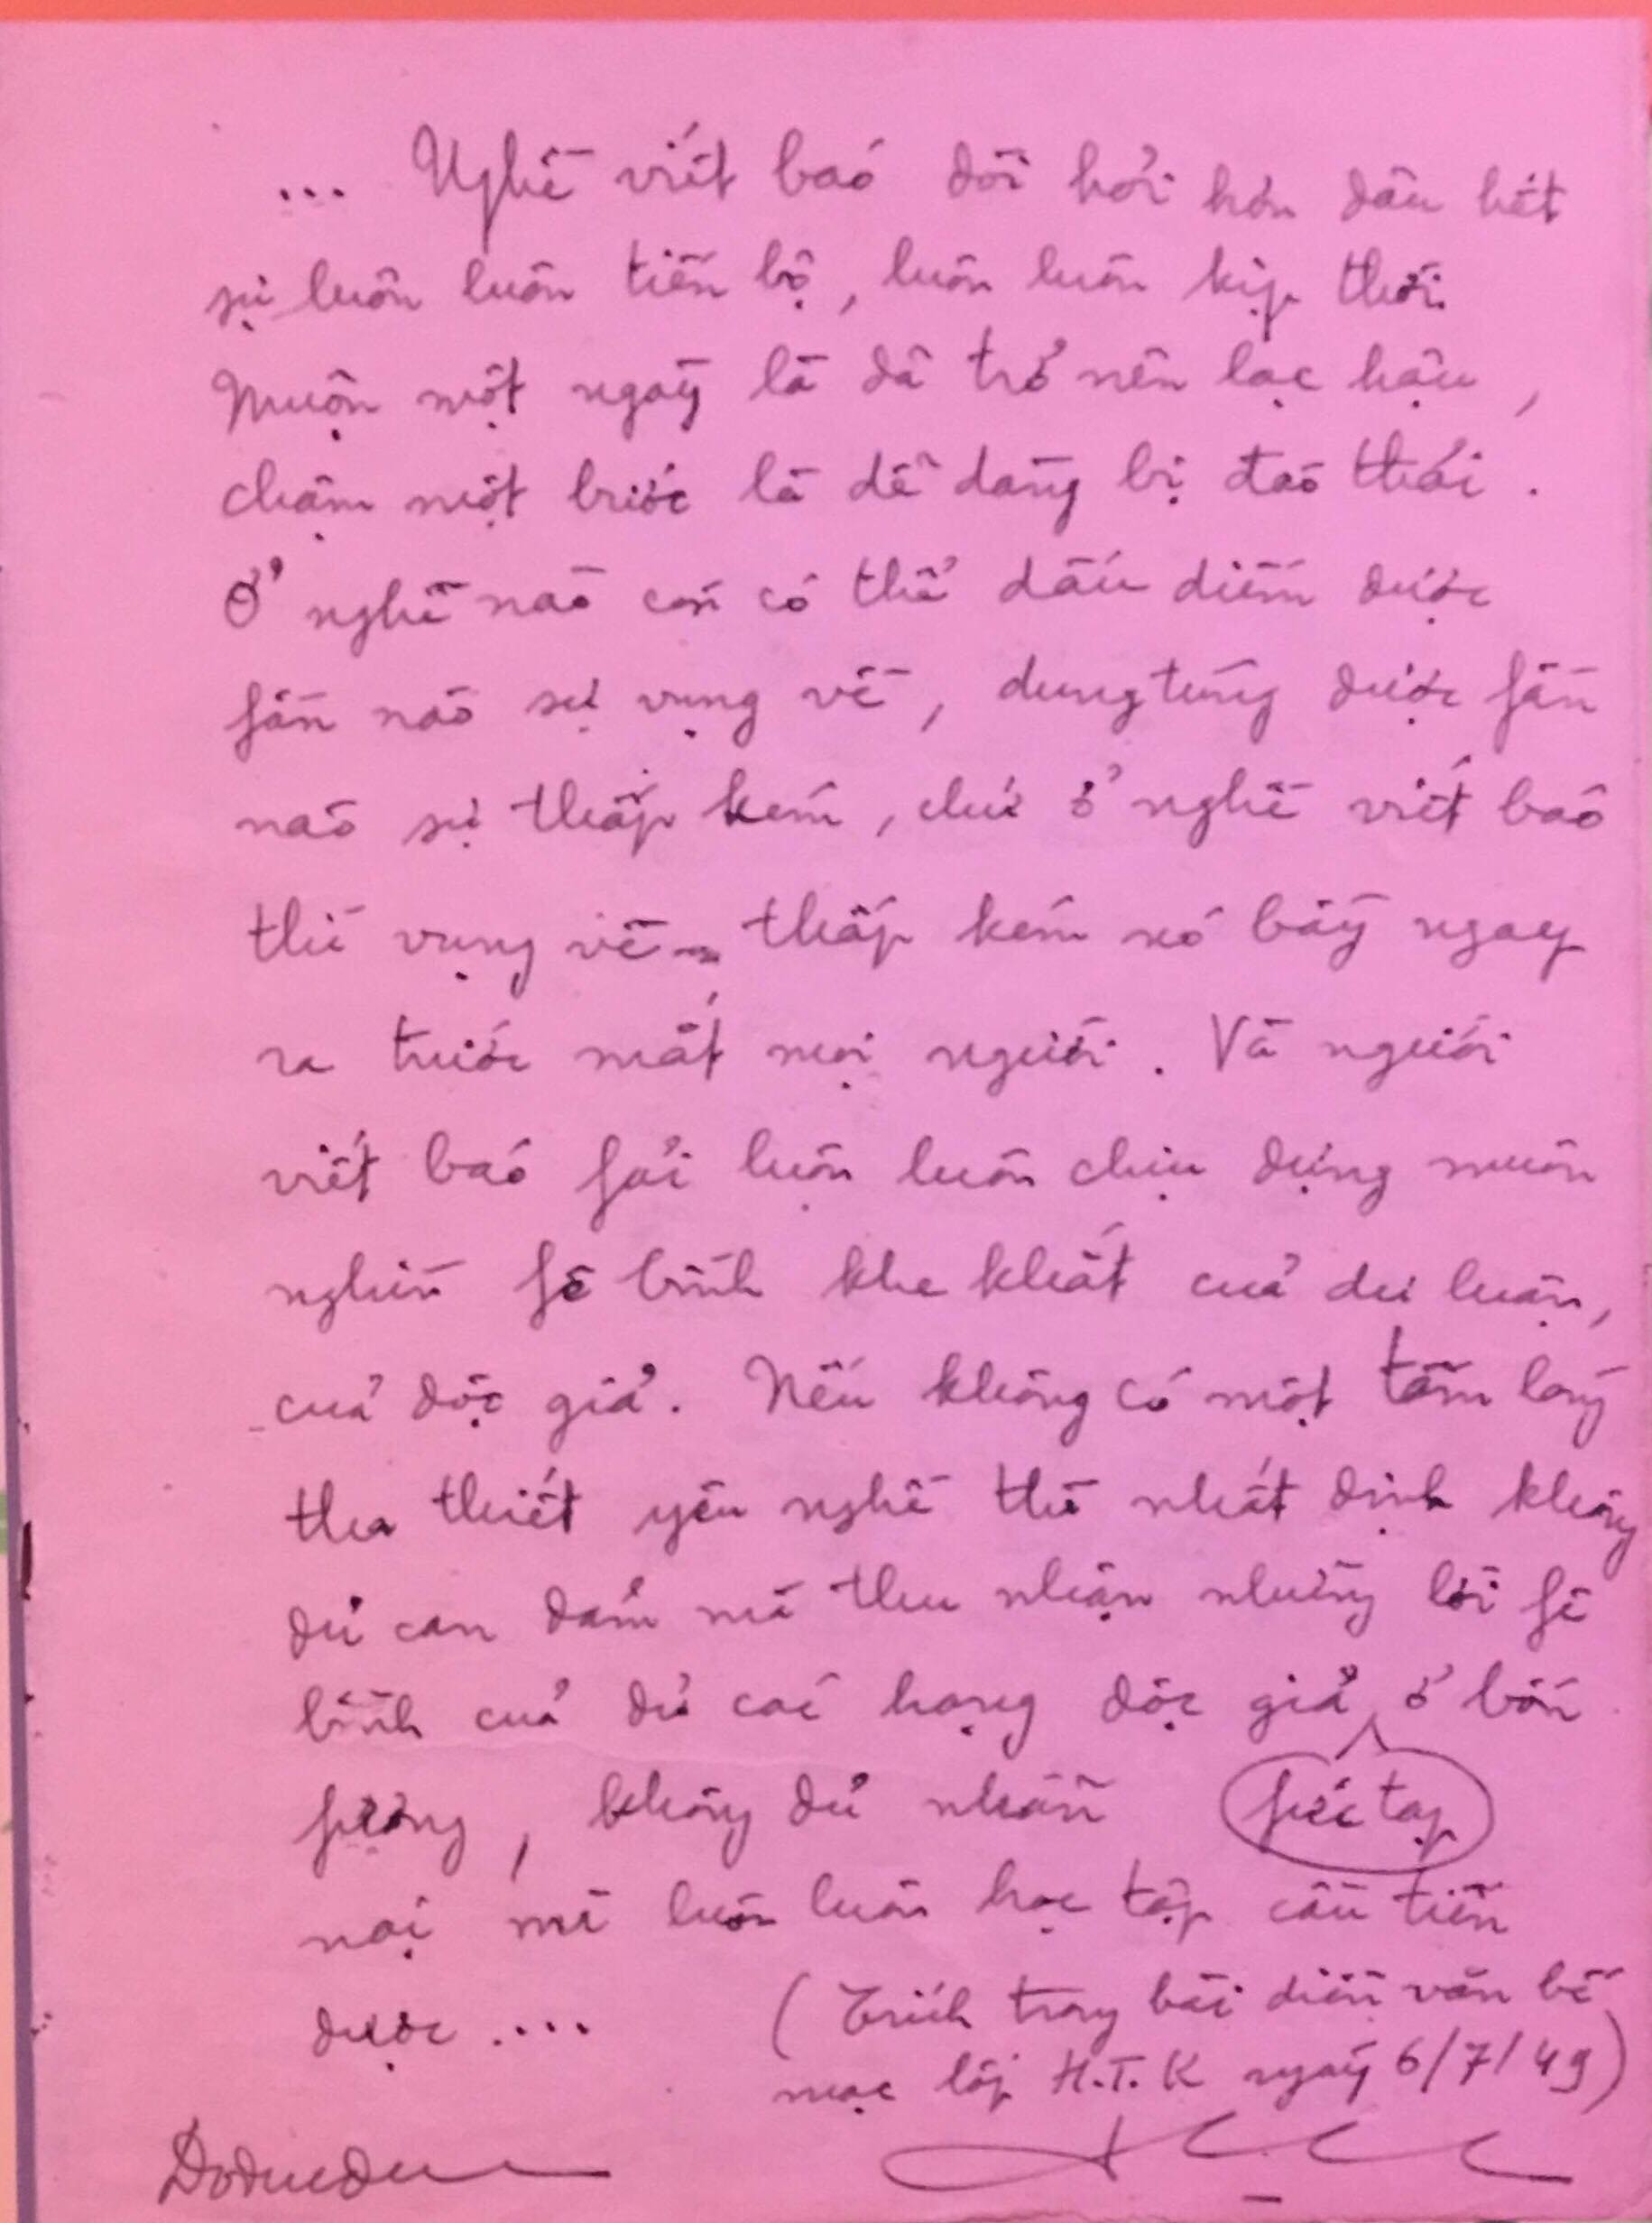 ... Nghề viết báo đòi hỏi hơn đâu hết
sự luôn luôn tiến bộ, luôn luôn kịp thời.
Muộn một ngày là đã trở nên lạc hậu,
chậm một bước là dễ dàng bị đào thải.
Ở nghề nào còn có thể dấu diếm được
fần nào sự vụng về, dung túng được fần
nào sự thấp kém, chứ ở nghề viết báo
thì vụng về thấp kém nó bầy ngay
ra trước mắt mọi người. Và người
viết báo fải luôn luôn chịu đựng muôn
nghìn fê bình khe khắt của dư luận,
của độc giả. Nếu không có một tấm lòng
tha thiết yêu nghề thì nhất định không
đủ can đảm mà thu nhận những lời fê
bình của đủ các hạng độc giả ở bốn
fương, không đủ nhẫn fức tạp
nại mà luôn luôn học tập cầu tiến
được .... (Trích trong bài diễn văn bế
mạc lớp H.T.K ngày 6/7/49)